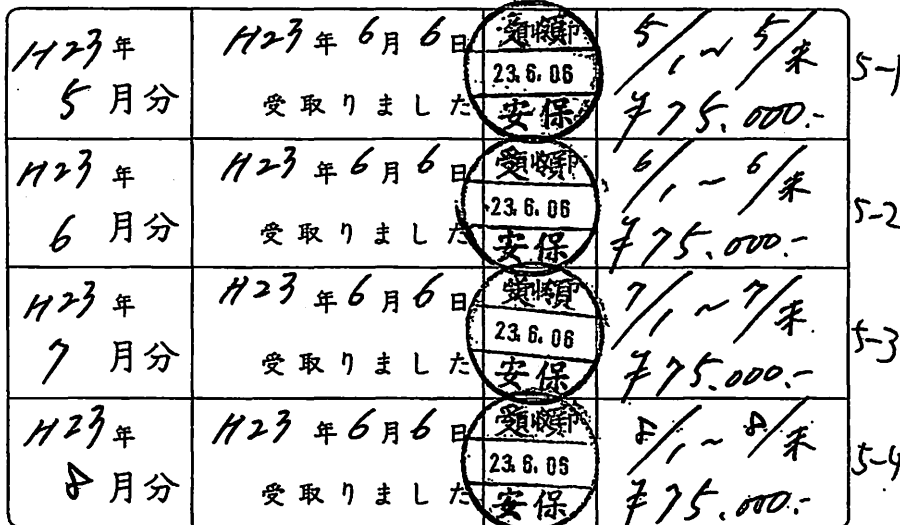 H23年
5月分
H23年6月6日
受取りました
領収印
23.6.06
安保
5/1~5/末
¥75.000.-
5-1
H23年
6月分
H23年6月6日
受取りました
領収印
23.6.06
安保
6/1~6/末
¥75.000.-
5-2
H23年
7月分
H23年6月6日
受取りました
領収印
23.6.06
安保
7/1~7/末
¥75.000.-
5-3
H23年
8月分
H23年6月6日
受取りました
領収印
23.6.06
安保
8/1~8/末
¥75.000.-
5-4